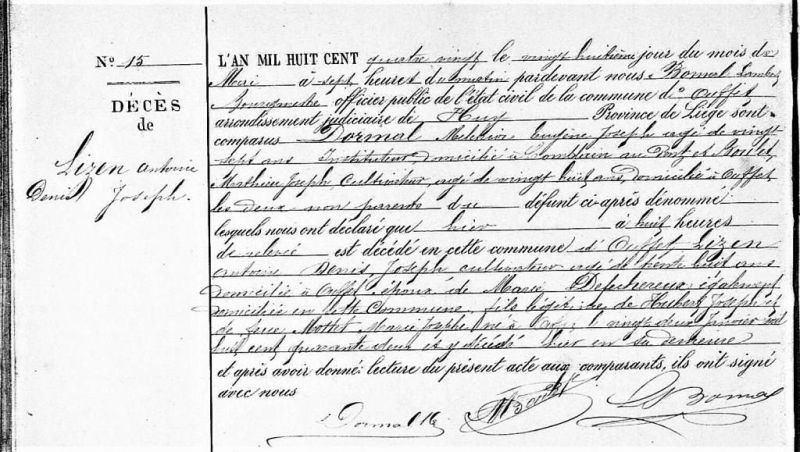 N° 15
DÉCÈS
de
Lizen Antoine
Denis Joseph.
L'AN MIL HUIT CENT quatre vingt le vingt huitième jour du mois de
Mai à sept heures du matin pardevant nous Bomal Lambert
Bourgmestre officier public de l'état civil de la commune d'Ouffet
arrondissement judiciaire de Huy Province de Liège sont
comparus Dormal Melchior Eugène Joseph âgé de vingt
sept ans Instituteur domicilié à Comblain au Pont et Boulet
Mathieu Joseph Cultivateur, âgé de vingt huit ans, domicilié à Ouffet
les deux non parents du défunt ci-après dénommé
lesquels nous ont déclaré que hier à huit heures
de relevé est décédé en cette commune d'Ouffet Lizen
Antoine Denis, Joseph cultivateur âgé de trente huit ans
domicilié à Ouffet époux de Marie Defechereux également
domiciliée en cette Commune, fils légitime de Hubert Joseph et
de feue Mottet Marie Josephe né à vingt deux Janvier mil
huit cent quarante deux et y décédé hier en sa demeure
et après avoir donné lecture du présent acte aux comparants, ils ont signé
avec nous
Dormal M Boulet L Bomal